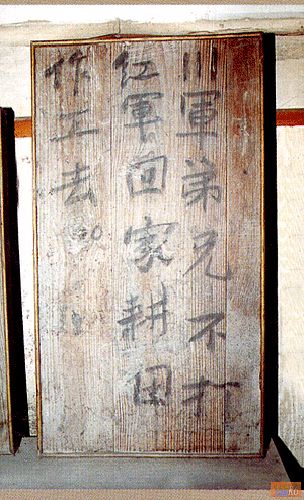 川軍弟兄不打
紅軍回家耕田
作工去